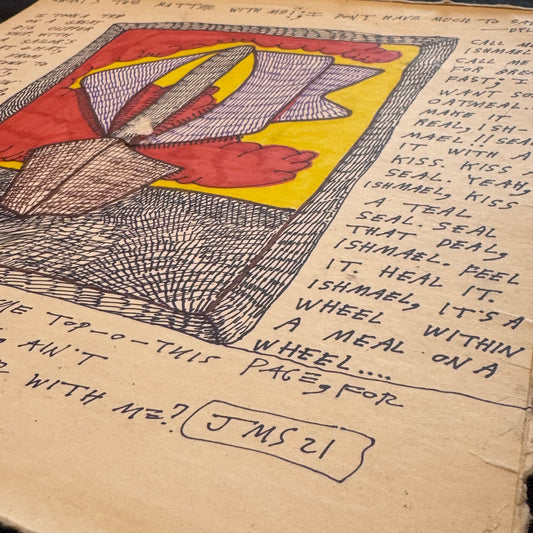 THE MATTER WITH ME? I DON'T HAVE MUCH TO
I
GREAT
CLIPPER
CALL ME
ISHMAEL
CALL ME
FOR
FAST, I
WANT
OATMEAL.
MAKE IT
REAL, ISH-
MAEL!! SEAL
IT WITH A
KISS. KISS A
SEAL. YEAH,
ISHMAEL, KISS
A TEAL
SEAL. SEAL
THAT DEAL,
ISHMAEL. PEEL
IT. HEAL IT.
ISHMAEL, IT'S A
WHEEL WITHIN
A MEAL ON A
WHEEL....
TOP-O-THIS PAGE, FOR
AIN'T
WITH ME?
JMS21